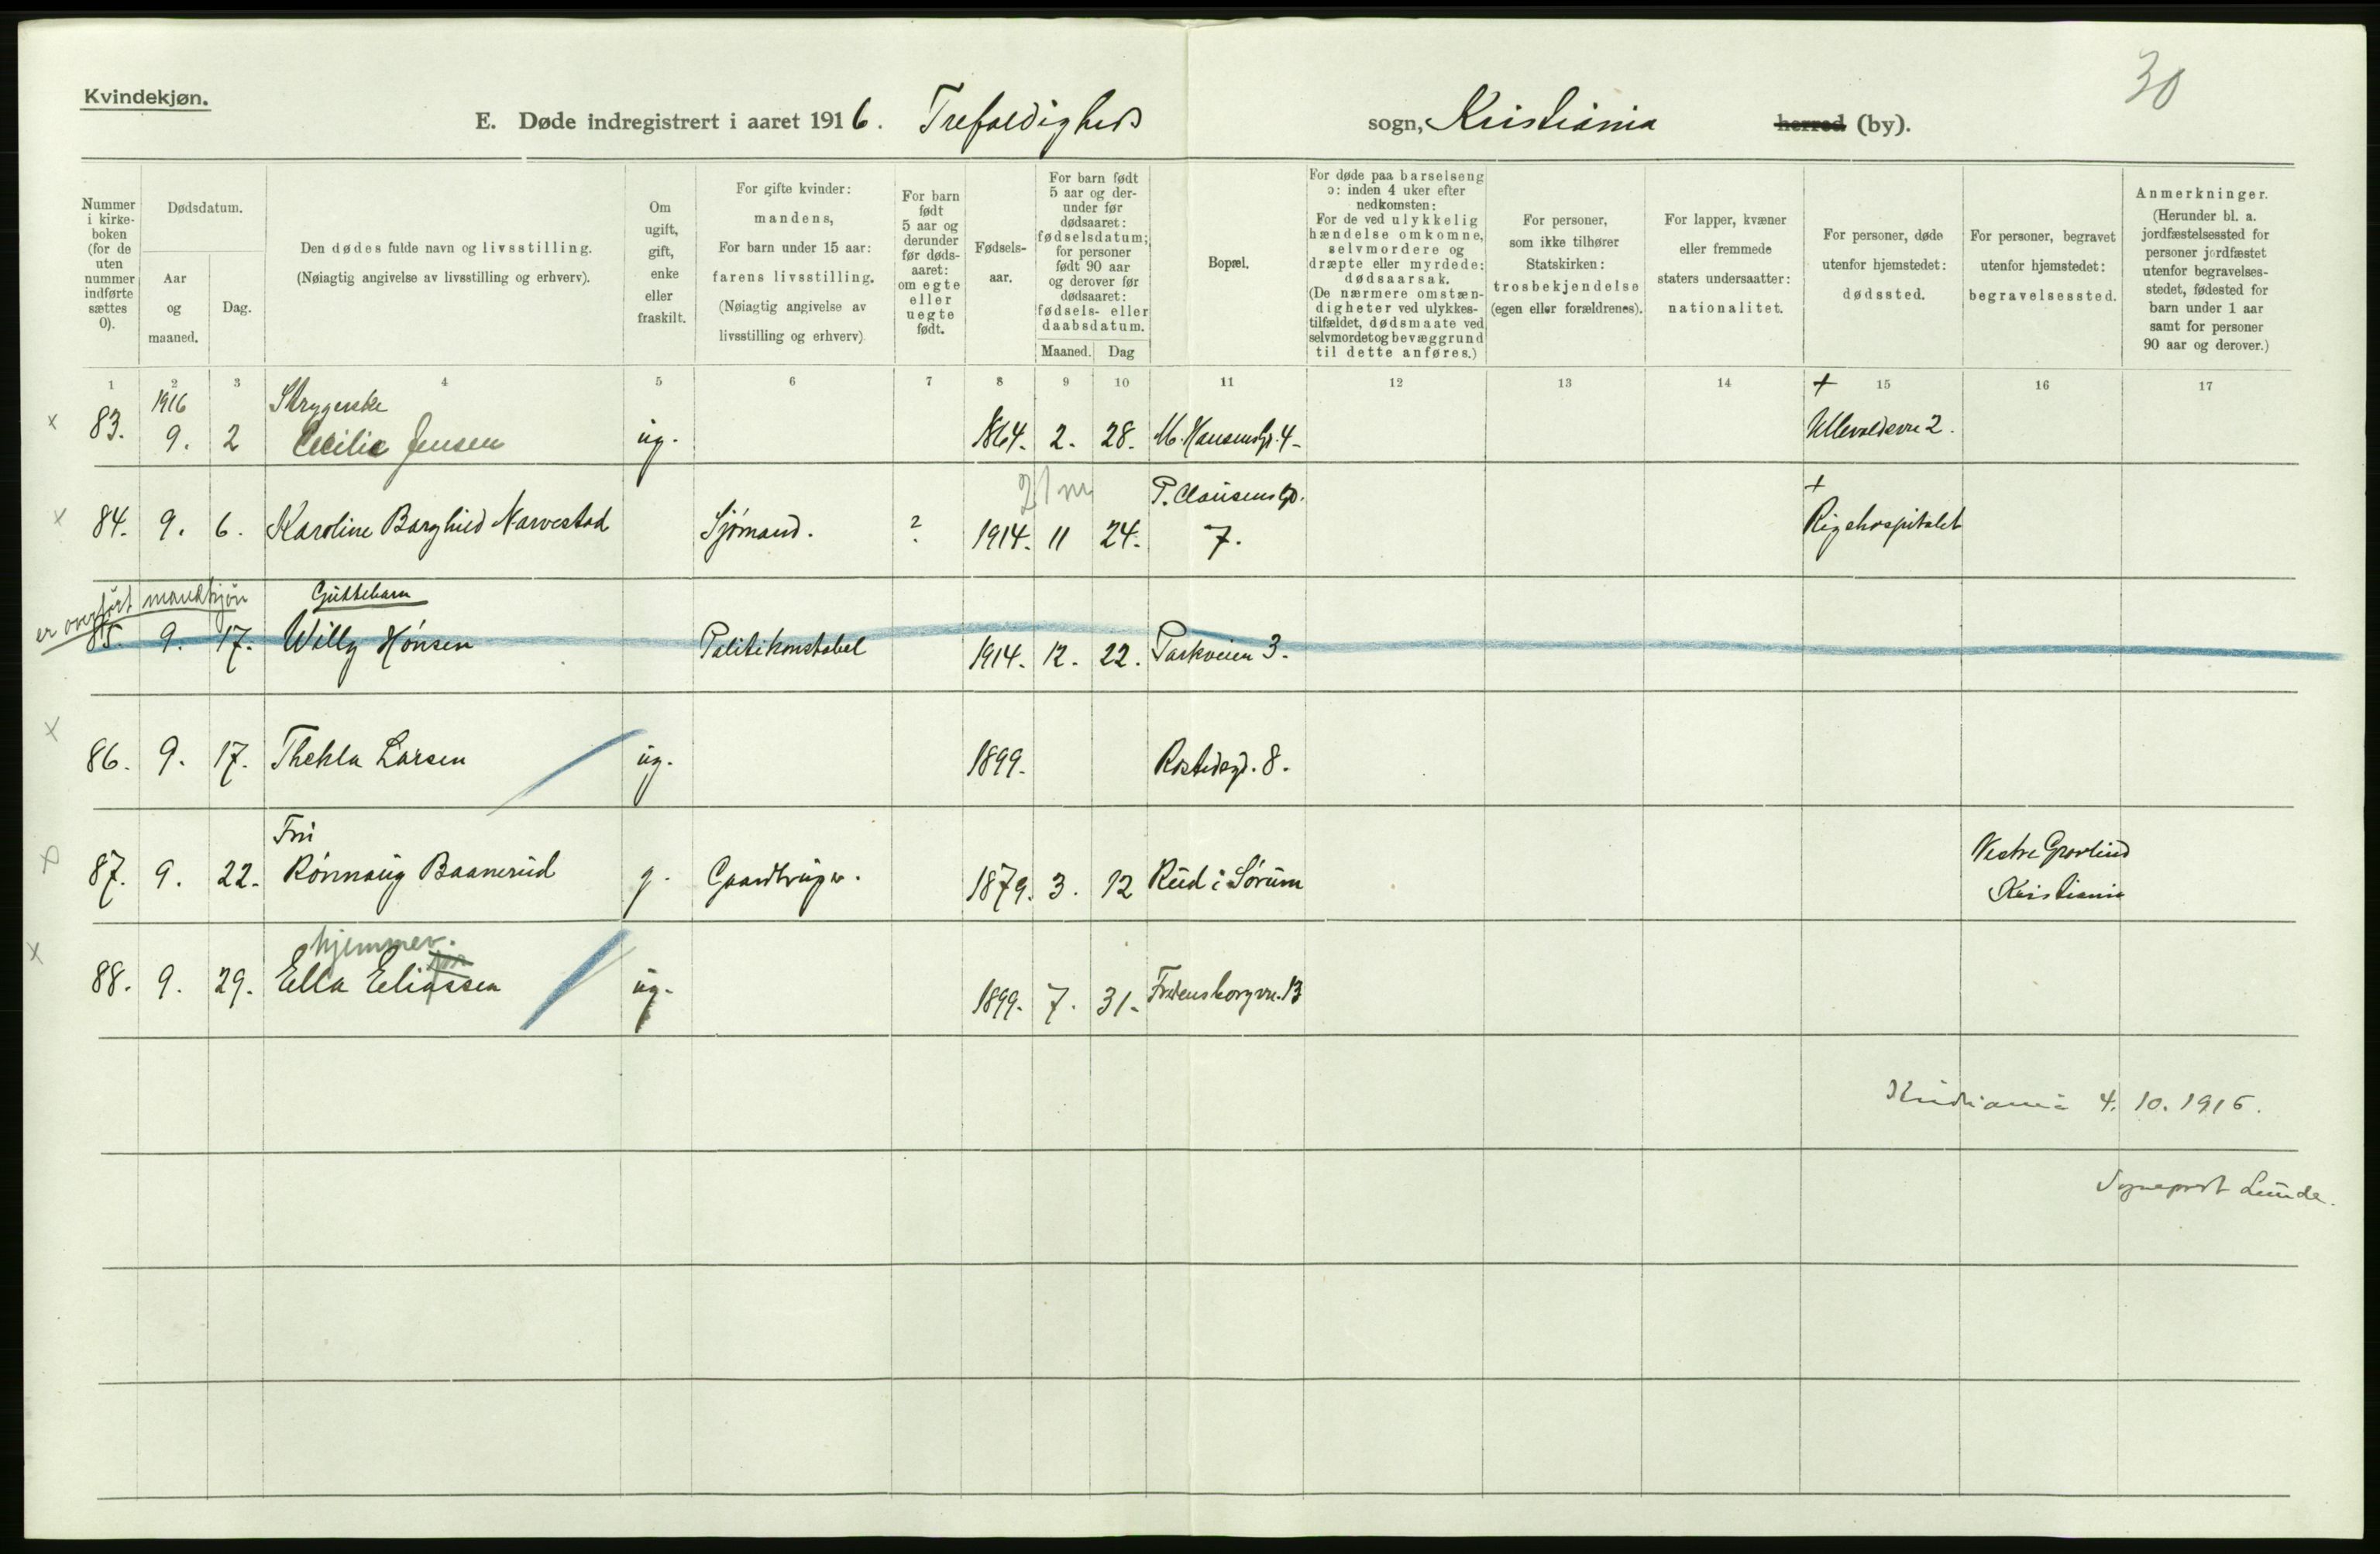 30
Kvindekjøn.
E. Døde indregistrert i aaret 1916. Trefoldigheds sogn, Kristiania herred (by).
Nummer i kirke-boken (for de uten nummer indførte sættes 0).
Dødsdatum.
Aar og maaned.
Dag.
Den dødes fulde navn og livsstilling.
(Nøiagtig angivelse av livsstilling og erhverv).
Om ugift, gift, enke eller fraskilt.
For gifte kvinder:
mandens,
For barn under 15 aar:
farens livsstilling.
(Nøiagtig angivelse av
livsstilling og erhverv)
For barn født 5 aar og derunder før døds-aaret: om egte eller uegte født.
Fødsels-aar.
For barn født 5 aar og der-under før dødsaaret: fødselsdatum; for personer født 90 aar og derover før dødsaaret: fødsels- eller daabsdatum.
Maaned. Dag
Bopæl.
For døde paa barselseng
ɔ: inden 4 uker efter
nedkomsten:
For de ved ulykkelig
hændelse omkomne,
selvmordere og
dræpte eller myrdede:
dødsaarsak.
(De nærmere omstæn-
digheter ved ulykkes-
tilfældet, dødsmaate ved
selvmordet og bevæggrund
til dette anføres.)
For personer,
som ikke tilhører
Statskirken:
trosbekjendelse
(egen eller forældrenes).
For lapper, kvæner
eller fremmede
staters undersaatter:
nationalitet.
For personer, døde
utenfor hjemstedet:
dødssted.
For personer, begravet
utenfor hjemstedet:
begravelsessted.
Anmerkninger.
(Herunder bl. a.
jordfæstelsessted for
personer jordfæstet
utenfor begravelses-
stedet, fødested for
barn under 1 aar
samt for personer
90 aar og derover.)
1 2 3 4 5 6 7 8 9 10 11 12 13 14 15 16 17
1916 Strygerske +
x 83. 9. 2 Cecilie Jensen ug. 1864. 2. 28. M. Hansensgt. 4- Ullevoldsvn 2.
21 m P. Clausensgt. +
x 84. 9. 6. Karoline Borghild Narvestad Sjømand. ? 1914. 11 24. 7. Rigshospitalet
er overført mandkjøn Guttebarn
85. 9. 17. Willy Hønsen Politikonstabel 1914. 12. 22. Parkveien 3.
x 86. 9. 17. Thekla Larsen ug. 1899. Rostedsgt. 8.
Fru Vestre Gravlund
x 87. 9. 22. Rønnaug Baanerud g. Gaardbruger. 1879. 3. 12 Rud i Sørum Kristiania
hjemmev.
x 88. 9. 29. Ella Eliassen ug. 1899. 7. 31. Fredensborgvn. 13
Kristiania 4. 10. 1916.
Sogneprest Lunde.